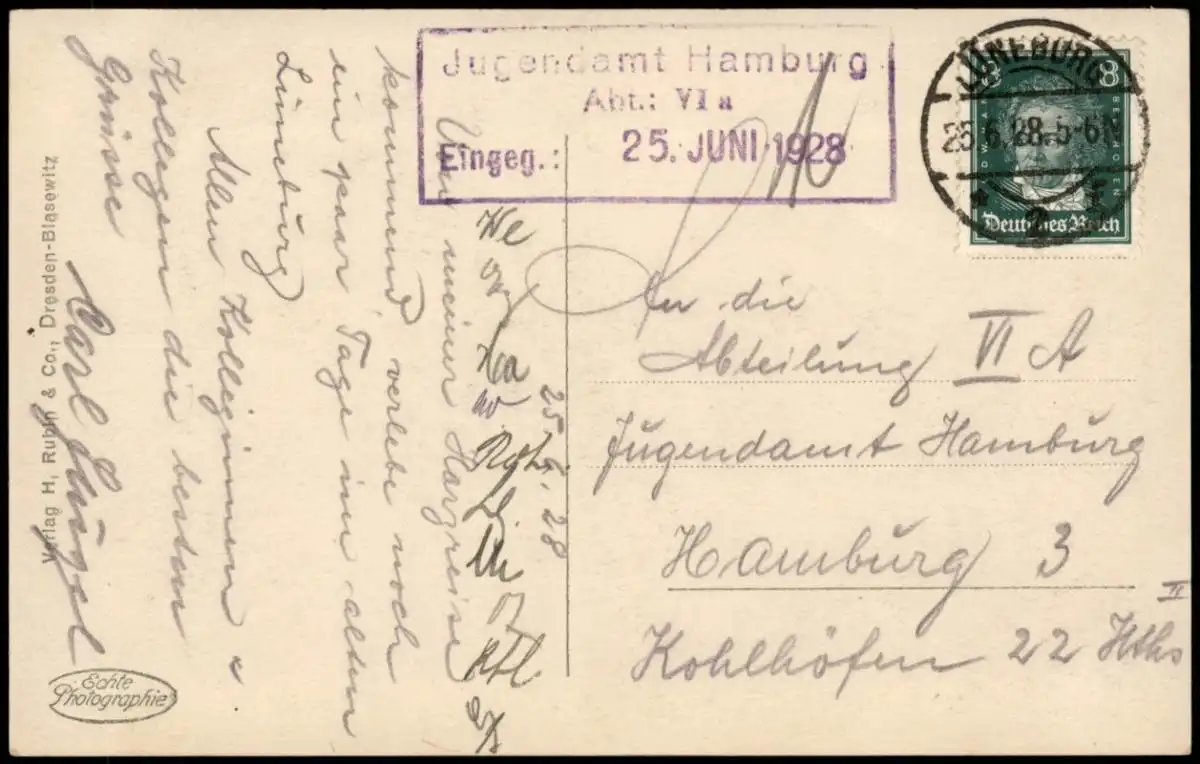 Jugendamt Hamburg
Abt.: VI a
Eingeg.: 25. JUNI 1928
LÜNEBURG
28.5-6N
2
8
8
LUDW. VAN
BEETHOVEN
Deutsches Reich
25.6.28
Von meiner Harzreise
kommend, verlebe noch
ein paar Tage im alten
Lüneburg
Allen Kolleginnen u
Kollegen die besten
Grüsse
Carl
An die
Abteilung VI A
Jugendamt Hamburg
Hamburg 3
Kohlhöfen 22 Hths
II
We
Ha
Verlag H, Rubin & Co., Dresden-Blasewitz
Echte
Photographie